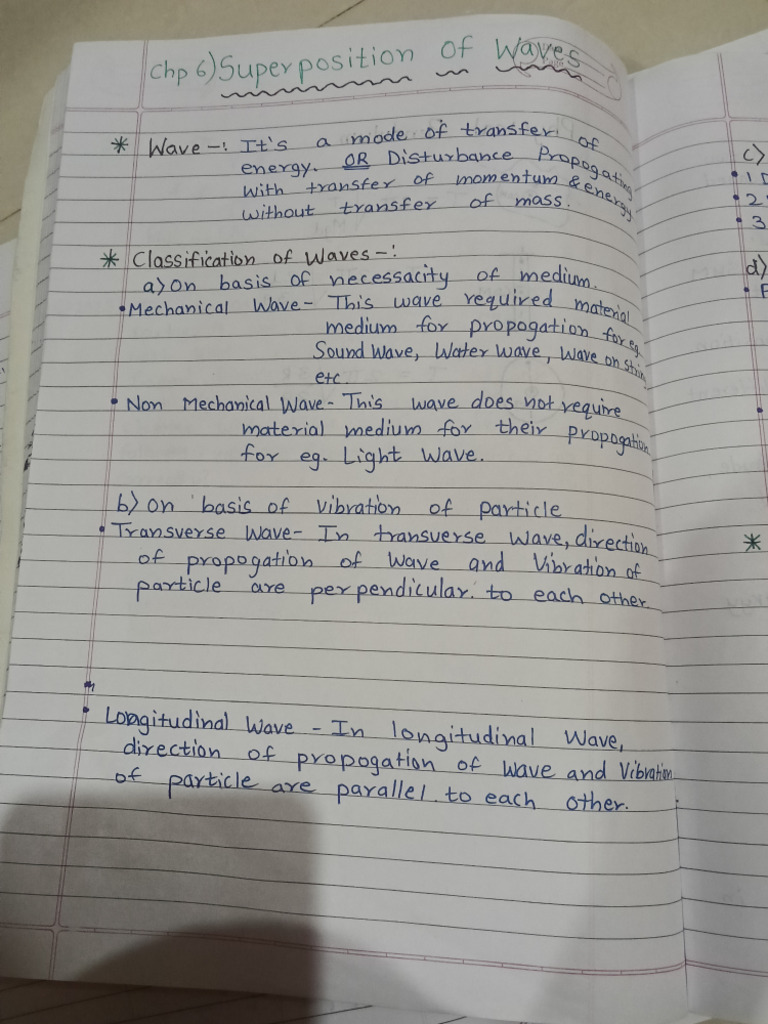 Chp 6) Superposition of Waves
* Wave -: It's a mode of transfer of
energy. OR Disturbance Propogating
With transfer of momentum & energy
without transfer of mass.
* Classification of Waves -:
a) On basis of necessacity of medium.
• Mechanical Wave - This wave required material
medium for propogation for eg.
Sound Wave, Water Wave, Wave on strin
etc.
• Non Mechanical Wave - This wave does not require
material medium for their propogation
for eg. Light Wave.
b) On basis of vibration of particle
• Transverse Wave - In transverse Wave, direction
of propogation of Wave and Vibration of
particle are perpendicular. to each other.
• Longitudinal Wave - In longitudinal Wave,
direction of propogation of Wave and Vibration
of particle are parallel. to each other.
c)
• 1
• 2
• 3
d)
*